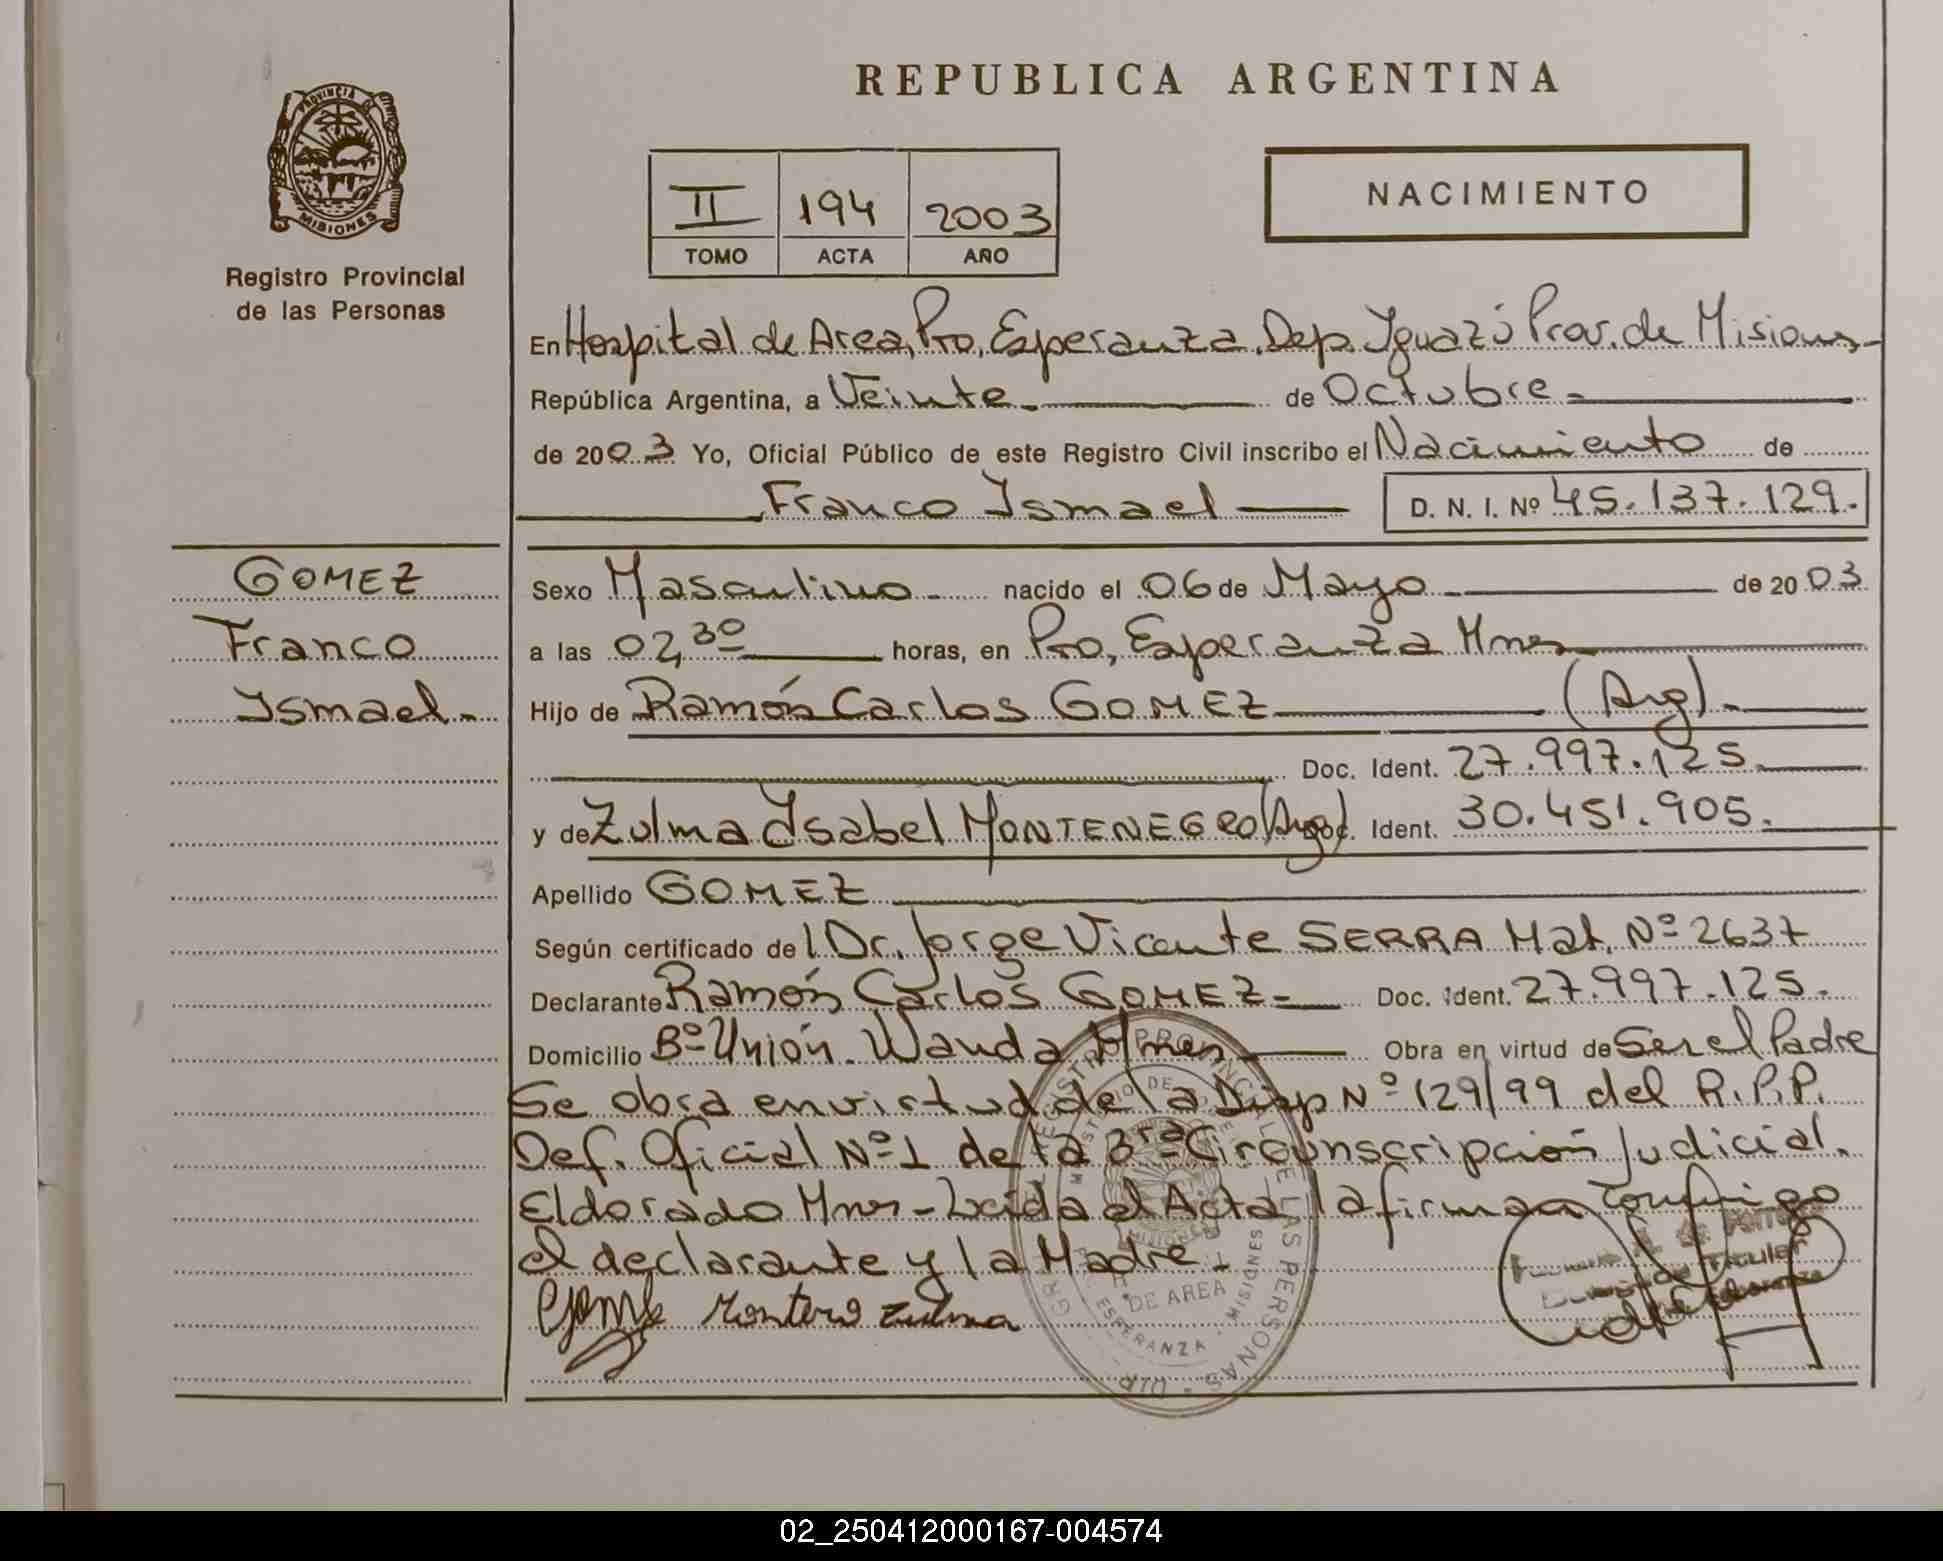 REPUBLICA ARGENTINA
PROVINCIA DE
MISIONES
Registro Provincial
de las Personas
II 194 2003
TOMO ACTA AÑO
NACIMIENTO
En Hospital de Area, Pto, Esperanza. Dep. Iguazú Prov. de Misiones
República Argentina, a Veinte de Octubre
de 2003 Yo, Oficial Público de este Registro Civil inscribo el Nacimiento de
Franco Ismael D. N. I. Nº 45.137.129.
GOMEZ
Franco
Ismael
Sexo Masculino nacido el 06 de Mayo de 2003
a las 02,30 horas, en Pto, Esperanza Mnes
Hijo de Ramón Carlos GOMEZ (Arg).
Doc. Ident. 27.997.125
y de Zulma Isabel MONTENEGRO (Arg) Doc. Ident. 30.451.905.
Apellido GOMEZ
Según certificado del Dr. Jorge Vicente SERRA Mat. Nº 2637
Declarante Ramón Carlos GOMEZ Doc. Ident. 27.997.125.
Domicilio Bº Unión. Wanda Mnes Obra en virtud de Ser el Padre
Se obra en virtud de la Disp Nº 129/99 del R.P.P.
Def. Oficial Nº 1 de la 3ra Circunscripción Judicial.
Eldorado Mnes - Leída el Acta la firman conmigo
el declarante y la Madre.
Zulma
REGISTRO PROVINCIAL DE LAS PERSONAS
MINISTERIO DE
DE AREA
ESPERANZA - MISIONES
Titular
02_250412000167-004574